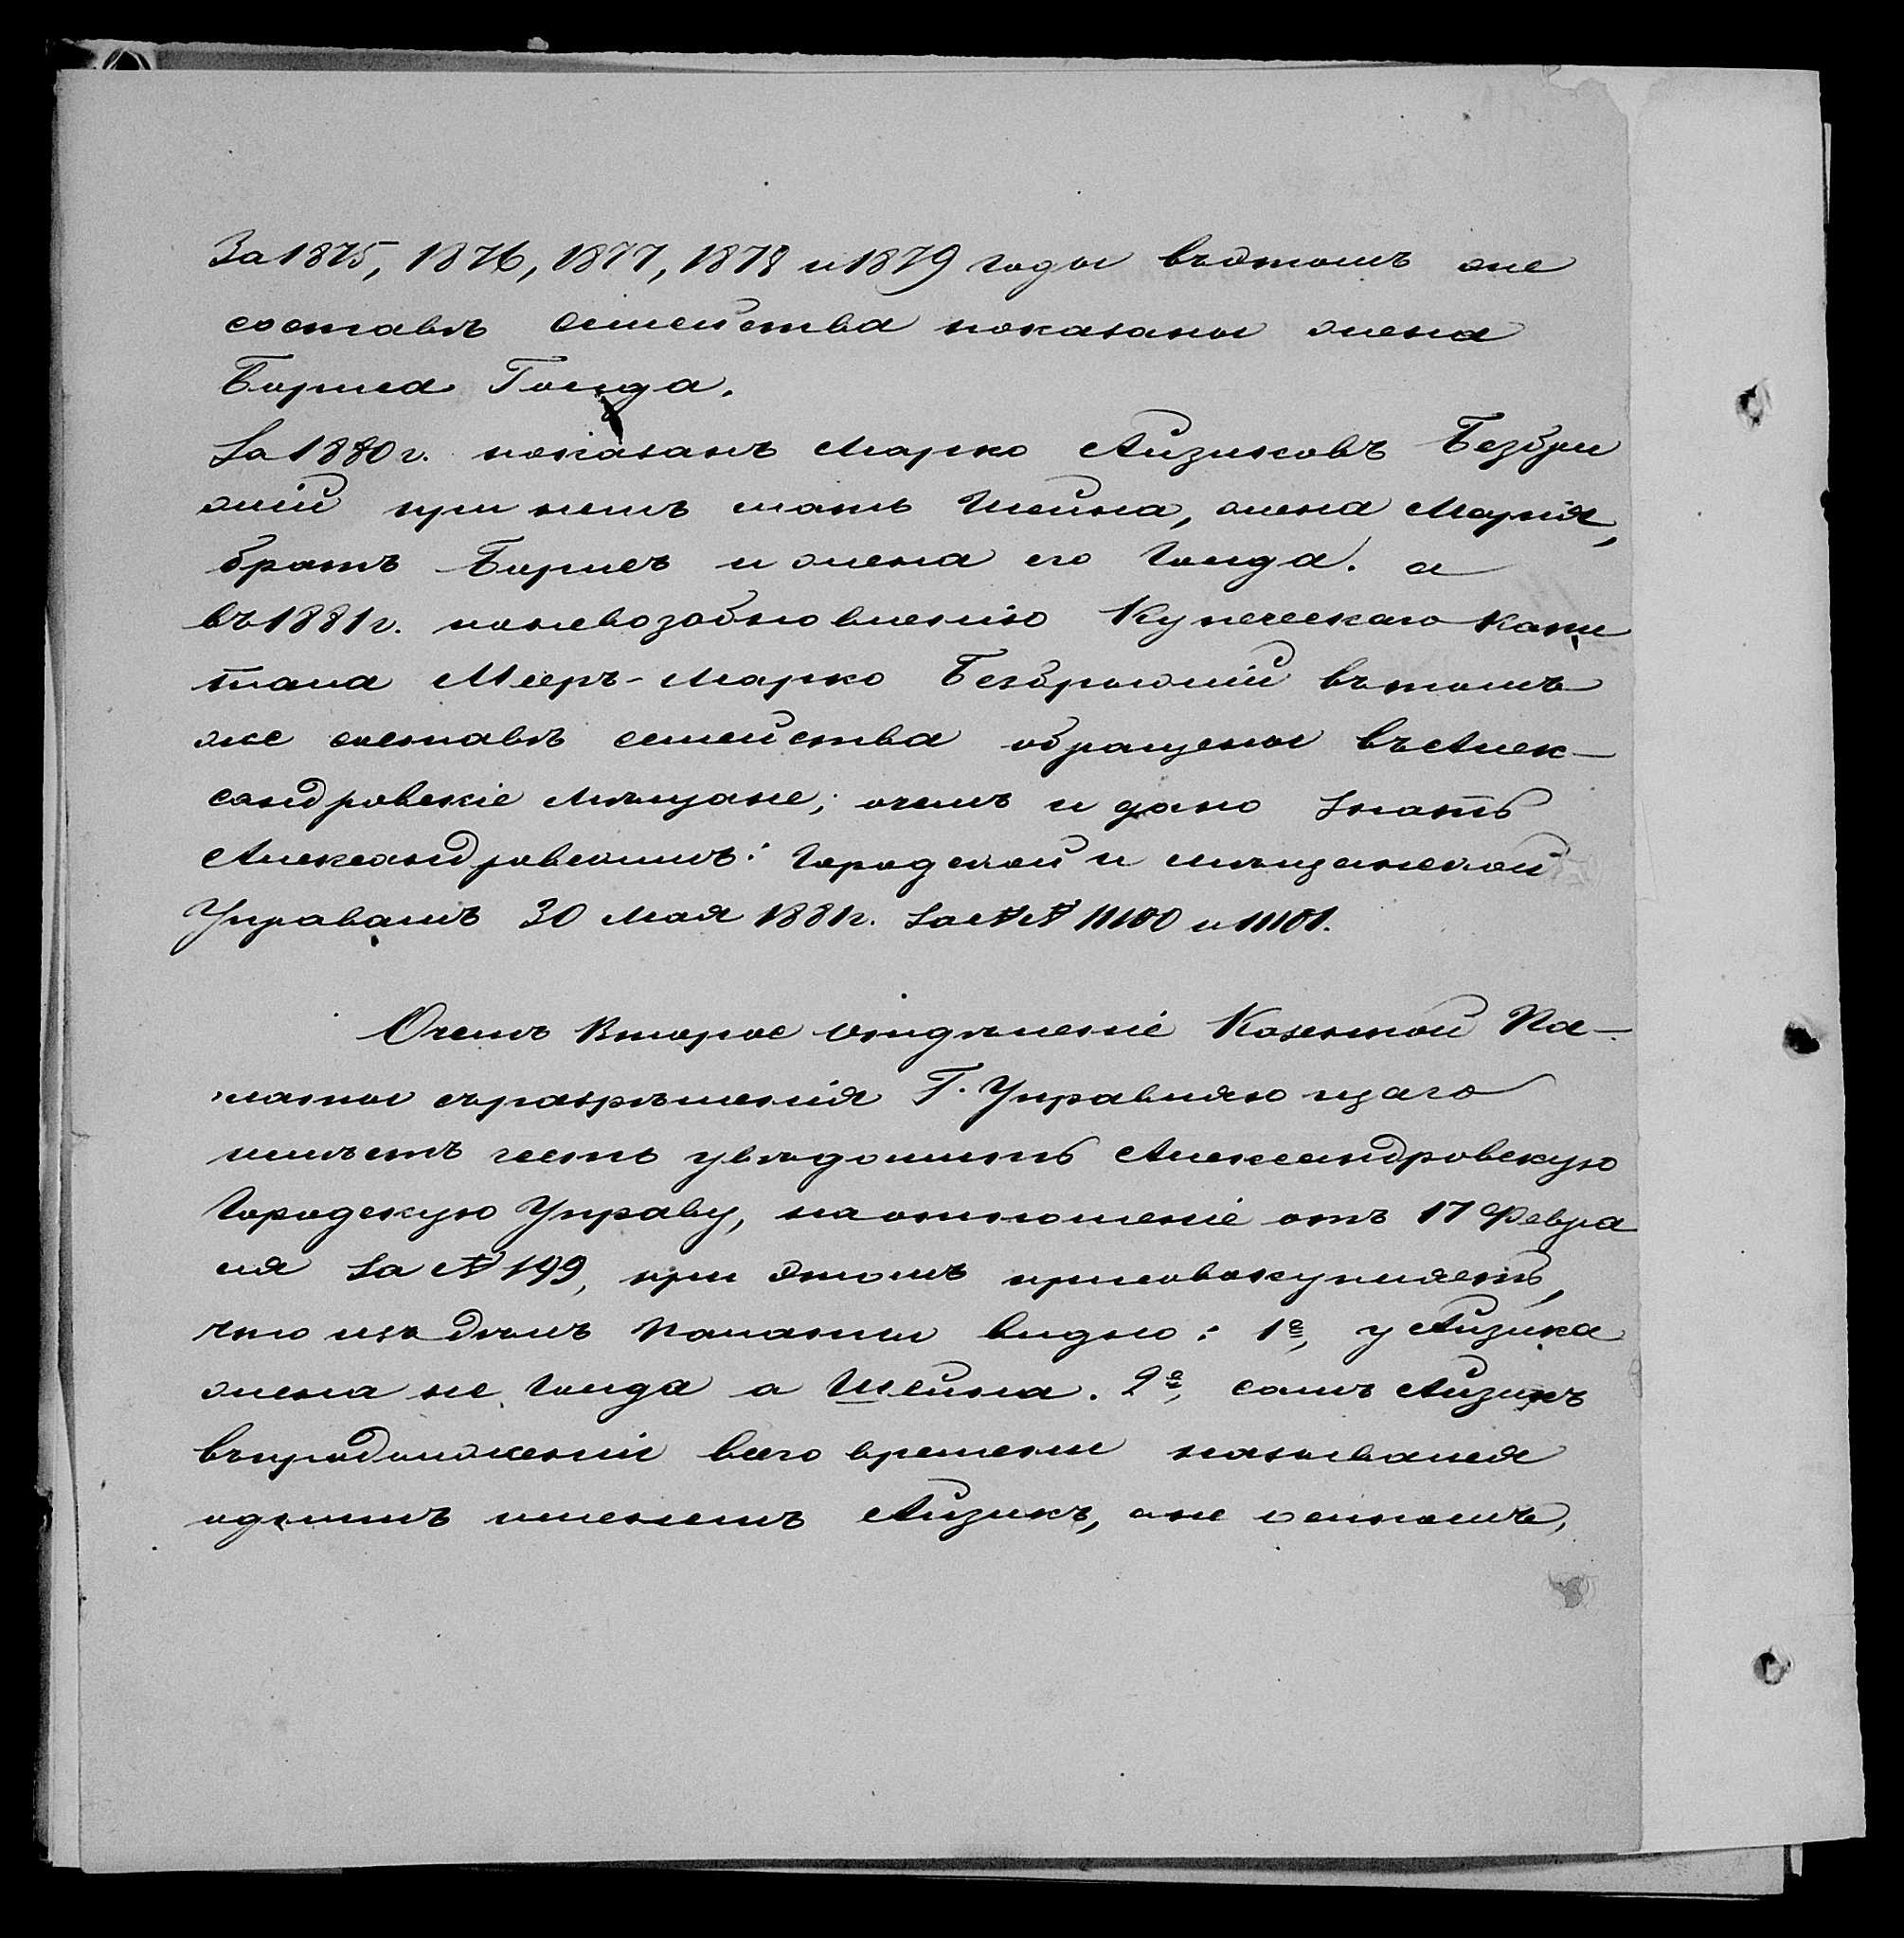 За 1875, 1876, 1877, 1878 и 1879 годы въ томъ же
составѣ семейства показаны жена
Бориса Гольда.
За 1880 г. показанъ Марко Айзиковъ Безбро
жій при немъ мать Шейна, жена Марія,
братъ Борисъ и жена его Гольда. а
въ 1881 г. по невозобновленію Купеческаго капи
тала Меер-Марко Безброжій въ томъ
же составѣ семейства обращены въ Алек-
сандровскіе Мѣщане; о чемъ и дано знать
Александровскимъ: Городской и мѣщанской
Управамъ 30 Мая 1881 г. за №№ 11100 и 11101.
О чемъ Второе Отдѣленіе Казенной Па-
латы съ разрѣшенія Г. Управляющаго
имѣетъ честь увѣдомить Александровскую
Городскую Управу, на отношеніе отъ 17 Февра
ля за № 199, при этомъ присовокупляетъ,
что изъ дѣлъ Палаты видно: 1е, у Айзика
жена не Гольда а Шейна. 2е, самъ Айзикъ
въ продолженіи всего времени назывался
однимъ именемъ Айзикъ, а не